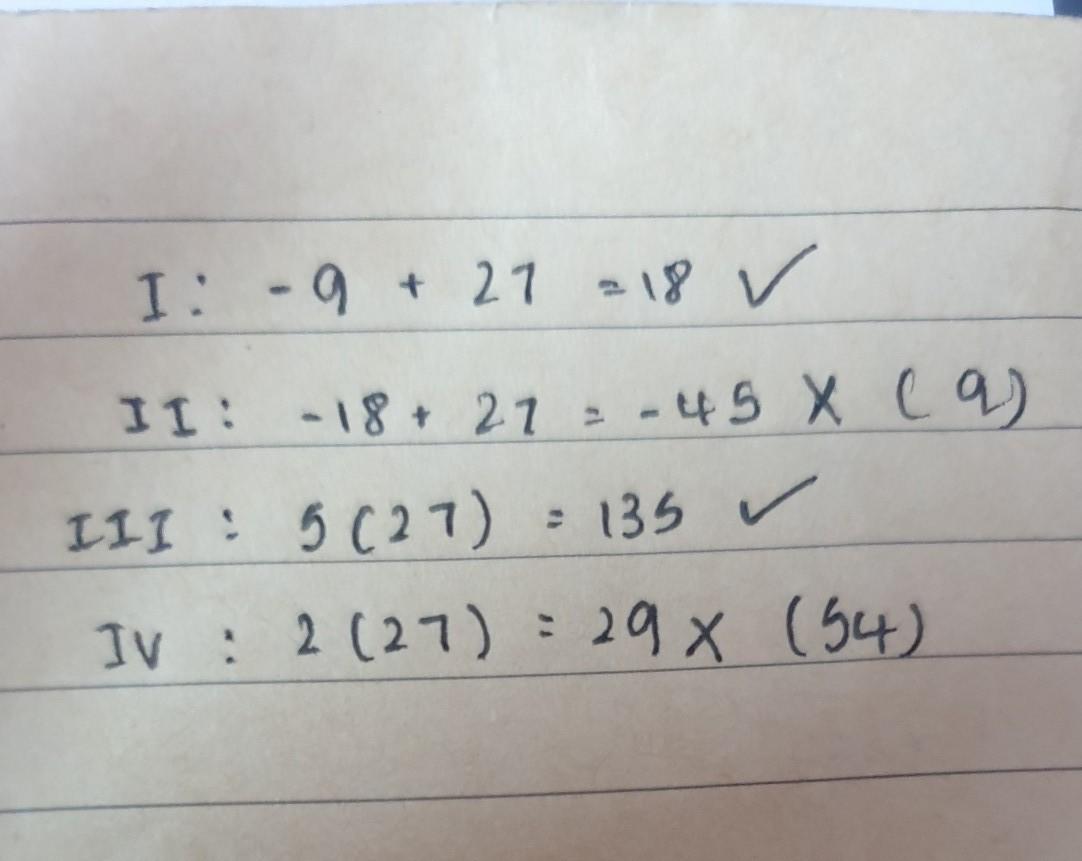 I: -9 + 27 = 18 ✓
II: -18 + 27 = -45 X (9)
III : 5(27) = 135 ✓
IV : 2(27) = 29 X (54)